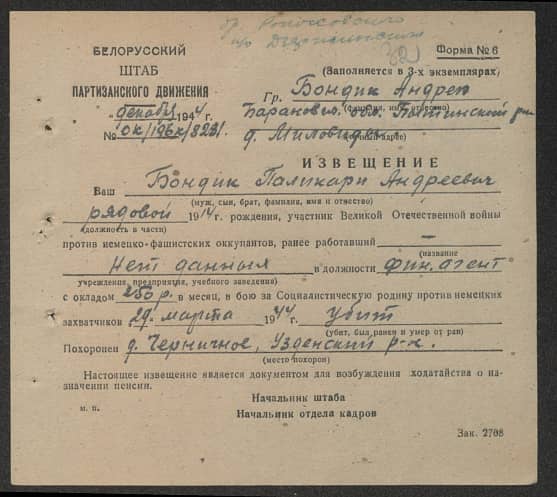 бр. Рокоссовского
п/о Дзержинского
(32)
БЕЛОРУССКИЙ
ШТАБ
ПАРТИЗАНСКОГО ДВИЖЕНИЯ
„ декабря 1944 г.
№ ок/196к/8231.
Форма № 6
(Заполняется в 3-х экземплярах)
Гр. Бондик Андрею
(фамилия, имя, отчество)
Баранович. обл. Бытинский
д. Миловиды
(точный адрес)
ИЗВЕЩЕНИЕ
Ваш Бондик Поликарп Андреевич
(муж, сын, брат, фамилия, имя и отчество)
рядовой 1914 г. рождения, участник Великой Отечественной войны
(должность в части)
против немецко-фашистских оккупантов, ранее работавший —
(название
Нет данных в должности фин. агент
учреждения предприятия, учебного заведения)
с окладом 250 р. в месяц, в бою за Социалистическую родину против немецких
захватчиков 29. марта 1944 г. убит
(убит, был ранен и умер от ран)
Похоронен д. Черничное, Узденский р-н.
(место похорон)
Настоящее извещение является документом для возбуждения ходатайства о на-
значении пенсии.
Начальник штаба
м. п.
Начальник отдела кадров
Зак. 2708